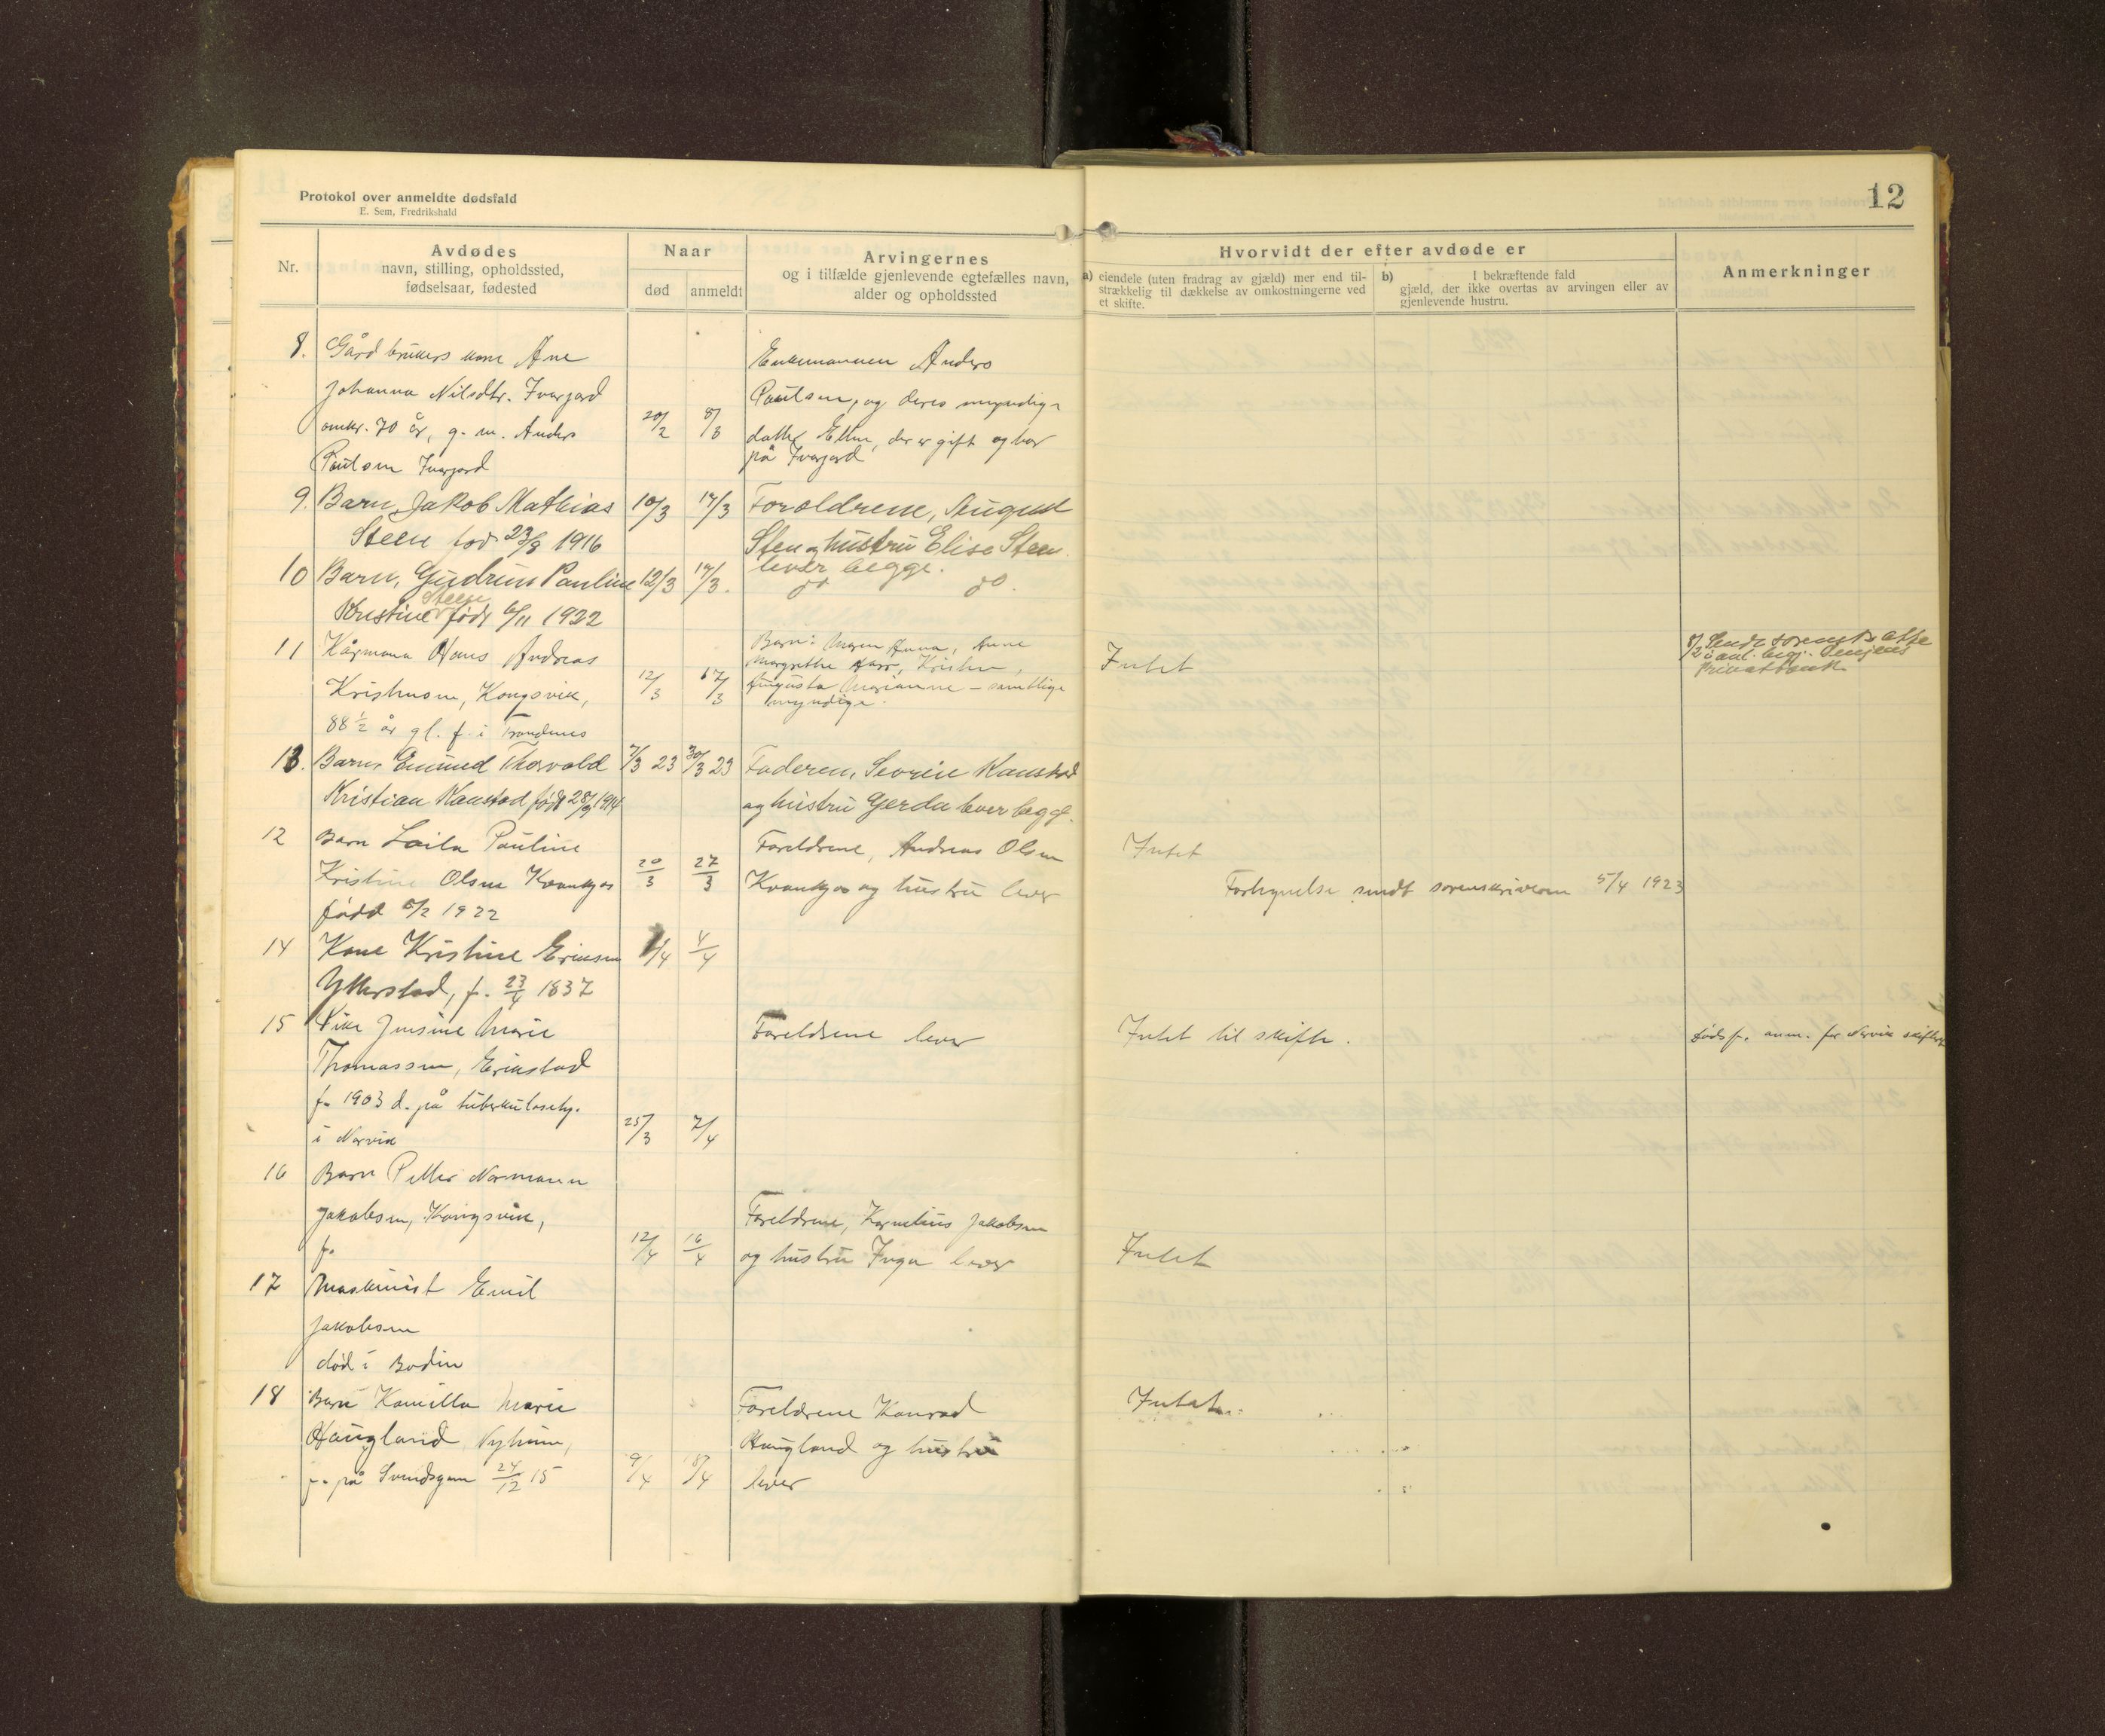 Protokol over anmeldte dødsfald
E. Sem, Fredrikshald
12
Nr.
Avdødes
navn, stilling, opholdssted,
fødselsaar, fødested
Naar
død
anmeldt
Arvingernes
og i tilfælde gjenlevende egtefælles navn,
alder og opholdssted
Hvorvidt der efter avdøde er
a) eiendele (uten fradrag av gjæld) mer end til-
strækkelig til dækkelse av omkostningerne ved
et skifte.
b) I bekræftende fald
gjæld, der ikke overtas av arvingen eller av
gjenlevende hustru.
Anmerkninger
8. Gårdbrukers kone Ane
Johanna Nilsdtr. Ivargard
omkr. 70 år, g. m. Anders
Paulsen Ivargard
20/2 8/3
Enkemannen Anders
Paulsen, og deres myndige
datter Ellen, der er gift og bor
på Ivargard
9. Barn, Jakob Mathias
Steen født 23/8 1916
10/3 17/3
Foroldrene, August
Sten og hustru Elise Steen
lever begge.
10 Barn, Gudrun Pauline
Kristine Steen født 6/11 1922
12/3 17/3.
do do.
11 Kårmann Hans Andreas
Kristensen, Kongsvik,
88 1/2 år gl. f. i Trondenes
12/3 17/3
Barn: Maren Anna, Anne
Margrethe, Kristen,
Augusta Marianne – samtlige
myndige.
Intet
8/2 Sendt sorenskr. atte
anl. begj.
Privatbank
13. Barn, Emund Thorvald
Kristian Kanstad født 28/9 1914
7/3 23 30/3 23
Faderen, Severin Kanstad
og hustru Gerda lever begge.
12 Barn Laila Pauline
Kristine Olsen Kvantjos
født 5/2 1922
20/3 27/3
Foreldrene, Andreas Olsen
og hustru lever
Intet
sendt sorenskriveren 5/4 1923
14 Kone Kristine Eriksen
Ytterstad, f. 23/4 1837
1/4 4/4
15 Pike Jensine Marie
Thomassen, Erikstad
f. 1903 d. på tuberkulosehj.
i Narvik
25/3 7/4
Foreldrene lever
Intet til skifte.
dødsf. anm. for Narvik skifter
16 Barn Petter Normann
Jakobsen, Kongsvik,
f.
12/4 16/4
Foreldrene, Kornelius Jakobsen
og hustru Inga lever
Intet
17 Maskinist Emil
Jakobsen
død i Bodin
18 Barn Kamilla Marie
Haugland Nyheim,
f. på Svendsgam 24/12 15
9/4 18/4
Foreldrene Konrad
Haugland og hustru
lever
Intet.